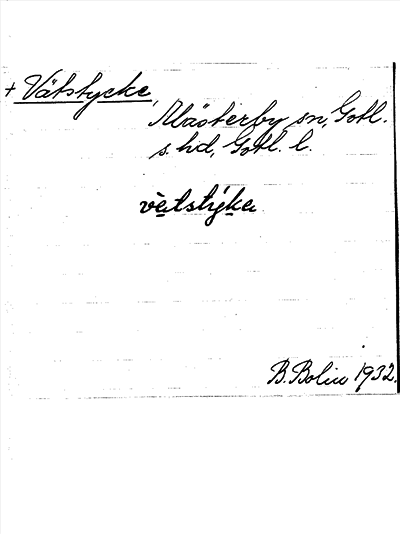 + Vätstycke,
Mästerby sn, Gotl.
s. hd, Gotl. l.
vètstỳke
B. Bolin 1932.